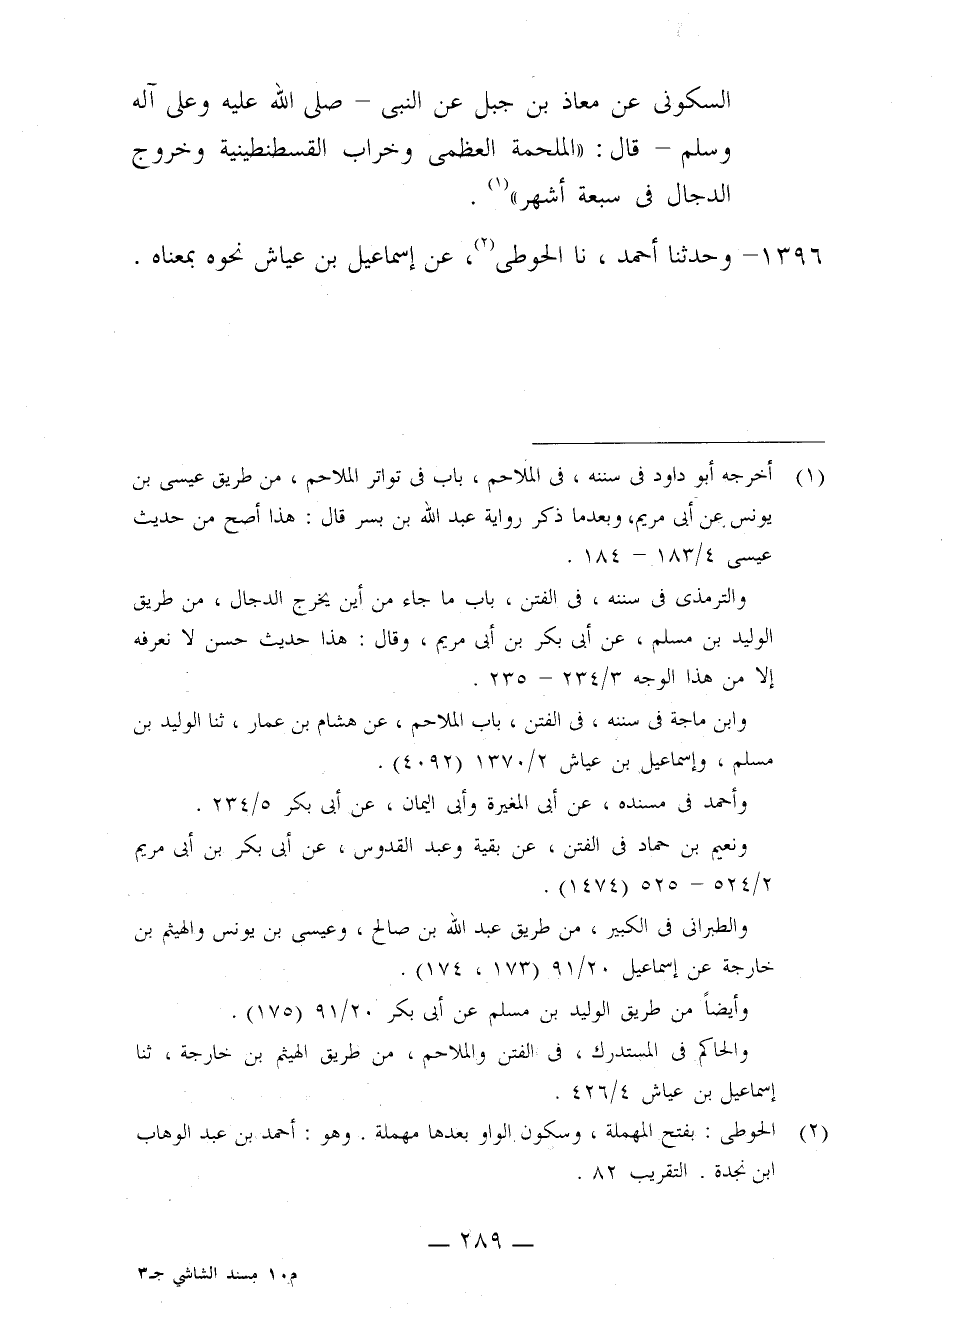 السكونى عن معاذ بن جبل عن النبى – صلى الله عليه وعلى آله
وسلم – قال : «الملحمة العظمى وخراب القسطنطينية وخروج
الدجال فى سبعة أشهر»(١) .
١٣٩٦– وحدثنا أحمد ، نا الحوطى(٢)، عن إسماعيل بن عياش نحوه بمعناه .
(١) أخرجه أبو داود فى سننه ، فى الملاحم ، باب فى تواتر الملاحم ، من طريق عيسى بن
يونس عن أبى مريم، وبعدما ذكر رواية عبد الله بن بسر قال : هذا أصح من حديث
عيسى ١٨٣/٤ – ١٨٤ .
والترمذى فى سننه ، فى الفتن ، باب ما جاء من أين يخرج الدجال ، من طريق
الوليد بن مسلم ، عن أبى بكر بن أبى مريم ، وقال : هذا حديث حسن لا نعرفه
إلا من هذا الوجه ٢٣٤/٣ – ٢٣٥ .
وابن ماجة فى سننه ، فى الفتن ، باب الملاحم ، عن هشام بن عمار ، ثنا الوليد بن
مسلم ، وإسماعيل بن عياش ١٣٧٠/٢ (٤٠٩٢) .
وأحمد فى مسنده ، عن أبى المغيرة وأبى اليمان ، عن أبى بكر ٢٣٤/٥ .
ونعيم بن حماد فى الفتن ، عن بقية وعبد القدوس ، عن أبى بكر بن أبى مريم
٥٢٤/٢ – ٥٢٥ (١٤٧٤) .
والطبرانى فى الكبير ، من طريق عبد الله بن صالح ، وعيسى بن يونس والهيثم بن
خارجة عن إسماعيل ٩١/٢٠ (١٧٣ ، ١٧٤) .
وأيضاً من طريق الوليد بن مسلم عن أبى بكر ٩١/٢٠ (١٧٥) .
والحاكم فى المستدرك ، فى الفتن والملاحم ، من طريق الهيثم بن خارجة ، ثنا
إسماعيل بن عياش ٤٢٦/٤ .
(٢) الحوطى : بفتح المهملة ، وسكون الواو بعدها مهملة . وهو : أحمد بن عبد الوهاب
ابن نجدة . التقريب ٨٢ .
— ٢٨٩ —
م١٠ مسند الشاشي جـ٣